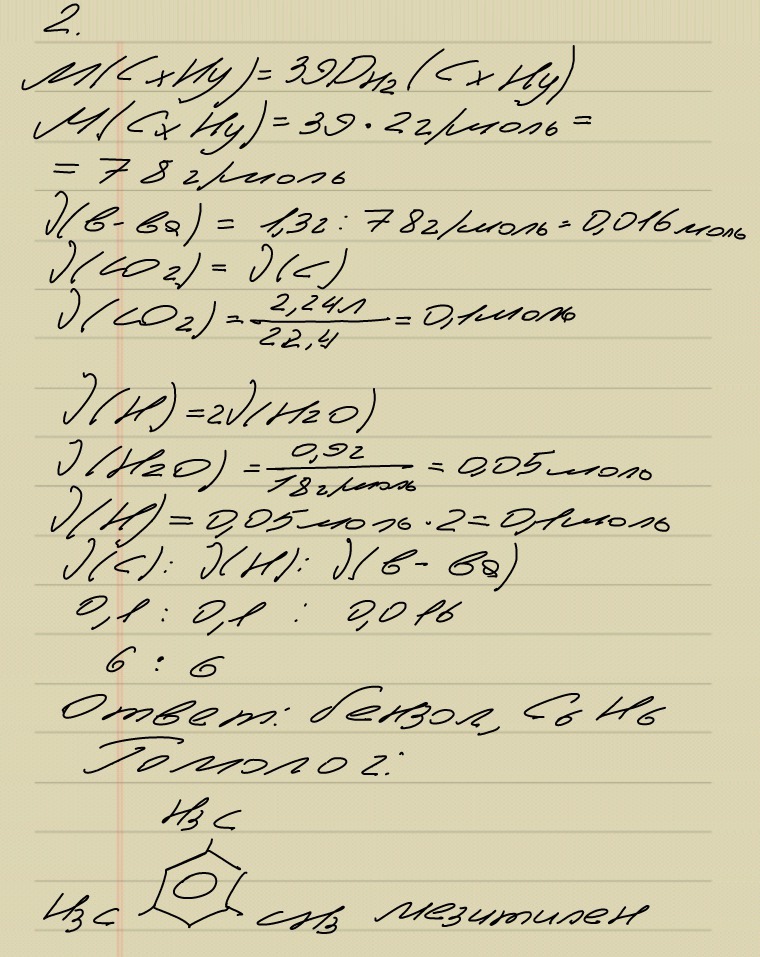 2.
M(CxHy) = 39D_H2(CxHy)
M(CxHy) = 39 · 2 г/моль =
= 78 г/моль
ν(в-ва) = 1,3г : 78г/моль = 0,016 моль
ν(CO2) = ν(C)
ν(CO2) = 2,24л / 22,4 = 0,1моль
ν(H) = 2ν(H2O)
ν(H2O) = 0,9г / 18г/моль = 0,05 моль
ν(H) = 0,05 моль · 2 = 0,1моль
ν(C) : ν(H) : ν(в-ва)
0,1 : 0,1 : 0,016
6 : 6
Ответ: бензол, C6H6
Гомолог:
H3C
H3C CH3 мезитилен